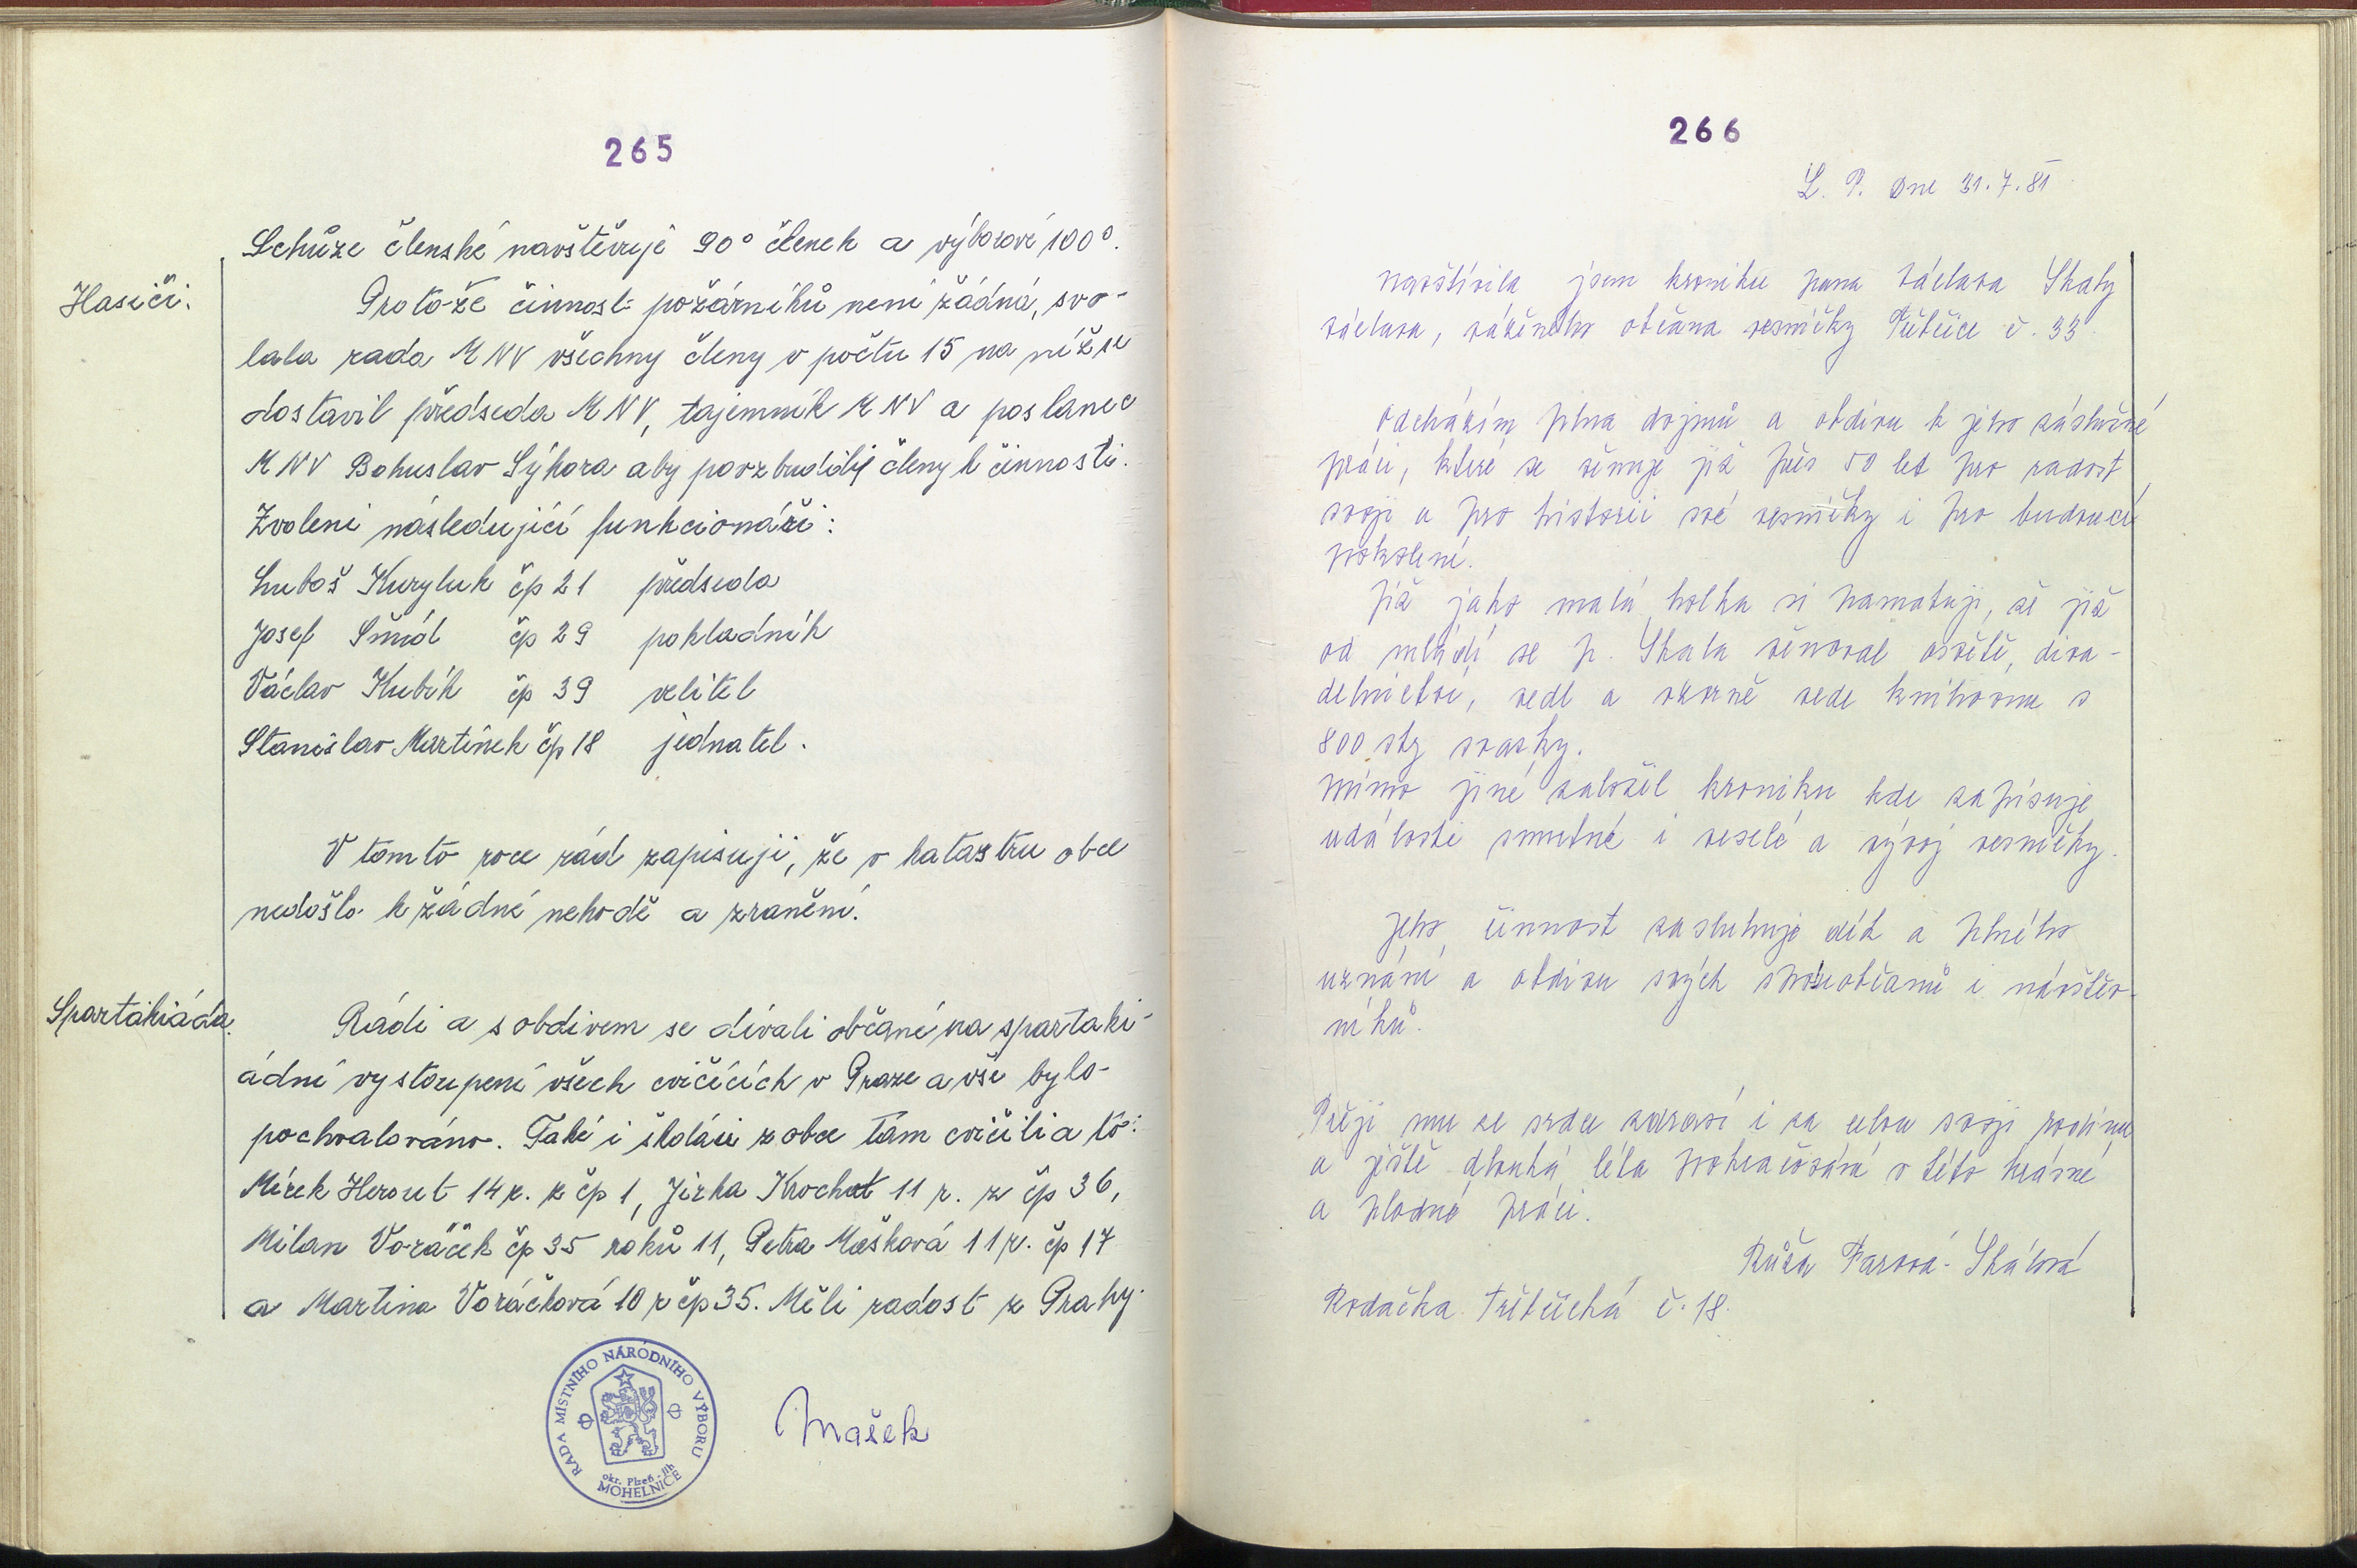 265
Schůze členské navštěvuje 90° členek a výborové 100°.
Hasiči:
Proto-že činnost požárníků není žádná, svo-
lala rada MNV všechny členy v počtu 15 na níž se
dostavil předseda MNV, tajemník MNV a poslanec
MNV Bohuslav Sýkora aby povzbudily členy k činnosti.
Zvoleni následující funkcionáři:
Luboš Kuryluk čp 21 předseda
Josef Šmíd čp 29 pokladník
Václav Kubík čp 39 velitel
Stanislav Martínek čp 18 jednatel.
V tomto roce rád zapisuji, že v katastru obce
nedošlo k žádné nehodě a zranění.
Spartakiáda.
Rádi a s obdivem se dívali občané na spartaki-
ádní vystoupení všech cvičících v Praze a vše bylo
pochvalováno. Také i školáci z obce tam cvičili a to:
Mirek Herout 14 r. z čp 1, Jirka Krochot 11 r. z čp 36,
Milan Voráček čp 35 roků 11, Petra Mašková 11 r. čp 17
a Martina Voráčková 10 r čp 35. Měli radost z Prahy.
RADA MÍSTNÍHO NÁRODNÍHO VÝBORU
okr. Plzeň-jih
MOHELNICE
Mašek
266
L. P. dne 31.7.81
navštívila jsem kroniku pana Václava Skaly
Václava, váženého občana vesničky Třebčice č. 33
Odcházím plna dojmů a obdivu k jeho záslužné
práci, které se věnuje již přes 50 let pro radost
svoji a pro historii své vesničky i pro budoucí
pokolení.
Již jako malá holka si pamatuji, že již
od mládí se p. Skala věnoval osvětě, diva-
delnictví, vedl a vzorně vede knihovnu s
800 sty svazky.
Mimo jiné založil kroniku kde zapisuje
události smutné i veselé a vývoj vesničky.
Jeho činnost zasluhuje dík a plného
uznání a obdivu svých spoluobčanů i návštěv-
níků.
Přeji mu ze srdce zdraví i za celou svoji rodinu
a ještě dlouhá léta pokračování v této krásné
a plodné práci.
Růža Farová-Skálová
Rodačka č. 18.